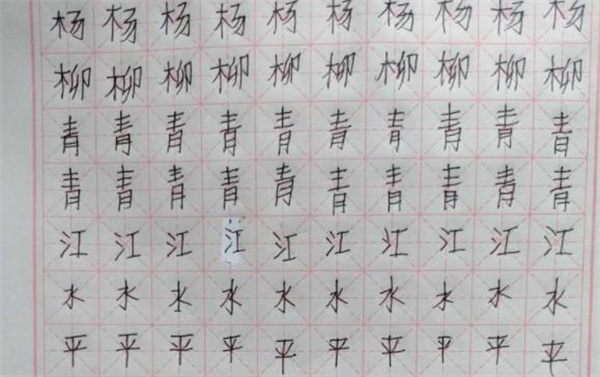 杨杨杨杨杨杨杨杨杨杨
柳柳柳柳柳柳柳柳柳柳
青青青青青青青青青青
青青青青青青青青青青
江江江江江江江江江江
水水水水水水水水水水
平平平平平平平平平平